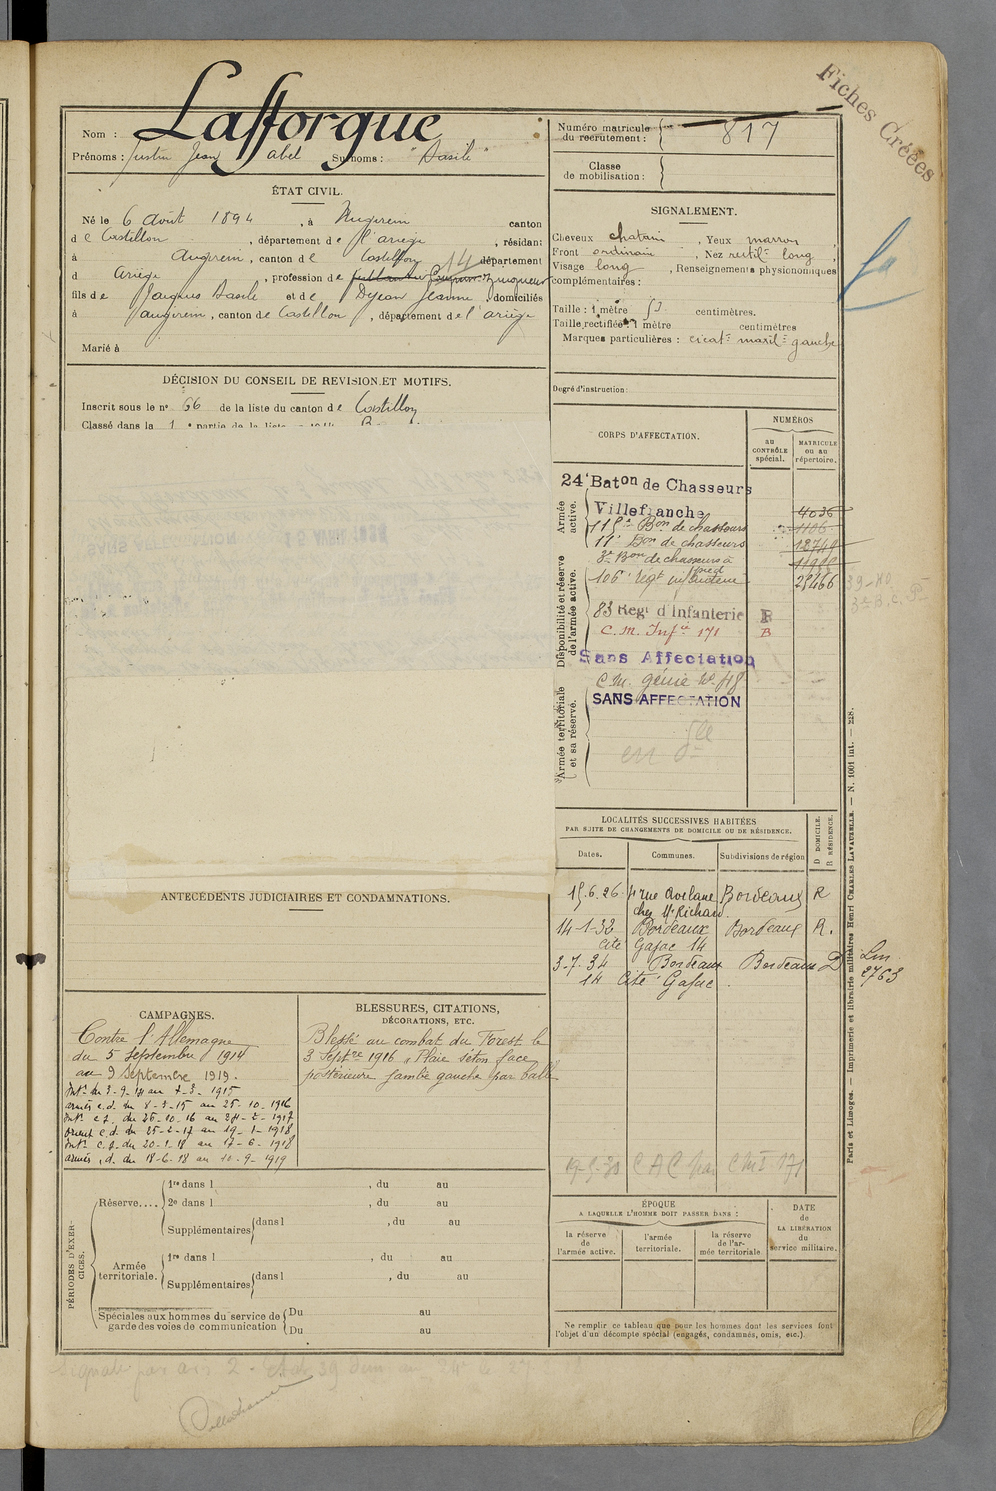 Fiches Créées
Nom : Lafforgue
Prénoms : Justin Jean abel Surnoms : "Basile"
ÉTAT CIVIL.
Né le 6 août 1894, à Augirein canton
de Castillon, département de l'ariège, résidant
à Augirein, canton de Castillon département
d Ariège, profession de zingueur
fils de Jacques Basile et de Dejean Jeanne, domiciliés
à augirein, canton de Castillon, département de l'ariège
Marié à
DÉCISION DU CONSEIL DE REVISION ET MOTIFS.
Inscrit sous le n° 66 de la liste du canton de Castillon
Classé dans la 1
ANTÉCÉDENTS JUDICIAIRES ET CONDAMNATIONS.
CAMPAGNES.
Contre l'Allemagne
du 5 septembre 1914
au 9 Septembre 1919.
Intr du 5-9-14 au 7-3-1915
armées c.d. du 8-3-15 au 25-10-1916
Intr c.s. du 26-10-16 au 24-2-1917
orient c.d. du 25-2-17 au 19-1-1918
Intr c.s. du 20-1-18 au 17-6-1918
armées c.d. du 18-6-18 au 10-9-1919
BLESSURES, CITATIONS,
DÉCORATIONS, ETC.
Blessé au combat du Forest le
3 Septre 1916, Plaie séton face
postérieure jambe gauche par balle
PÉRIODES D'EXERCICES.
Réserve.... 1re dans l , du au
2e dans l , du au
Supplémentaires dans l , du au
Armée territoriale. 1re dans l , du au
Supplémentaires dans l , du au
Spéciales aux hommes du service de garde des voies de communication Du au
Du au
Numéro matricule du recrutement : 817
Classe de mobilisation :
SIGNALEMENT.
Cheveux chatain, Yeux marron
Front ordinaire, Nez rectil. long,
Visage long, Renseignements physionomiques
complémentaires :
Taille : 1 mètre 53 centimètres.
Taille rectifiée : 1 mètre centimètres
Marques particulières : cicat. maxil. gauche
Degré d'instruction :
CORPS D'AFFECTATION.
NUMÉROS
au CONTRÔLE spécial.
MATRICULE ou au répertoire.
Armée active.
24e Baton de Chasseurs
Villefranche 4036
115e Bon de chasseurs 1106
11e Bon de chasseurs 12749
3e Bon de chasseurs à pied
Disponibilité et réserve de l'armée active.
106e Regt infanterie 29466
83 Regt d'Infanterie R
C.M. Infie 171 B
Sans Affectation
C.M. génie No 18
Armée territoriale et sa réserve.
SANS AFFECTATION
LOCALITÉS SUCCESSIVES HABITÉES
PAR SUITE DE CHANGEMENTS DE DOMICILE OU DE RÉSIDENCE.
Dates. Communes. Subdivisions de région D DOMICILE. R RÉSIDENCE.
15.6.26 4 rue Avelane Bordeaux R
chez Mr Richard
14-1-32 Bordeaux Bordeaux R.
Cité Gajac 14
3-7-34 Bordeaux Bordeaux D
14 Cité Gajac
2763
ÉPOQUE
A LAQUELLE L'HOMME DOIT PASSER DANS :
la réserve de l'armée active.
l'armée territoriale.
la réserve de l'armée territoriale
DATE de LA LIBÉRATION du service militaire.
Ne remplir ce tableau que pour les hommes dont les services font
l'objet d'un décompte spécial (engagés, condamnés, omis, etc.).
Paris et Limoges. — Imprimerie et librairie militaires Henri CHARLES-LAVAUZELLE. — N. 1001 int. — 218.